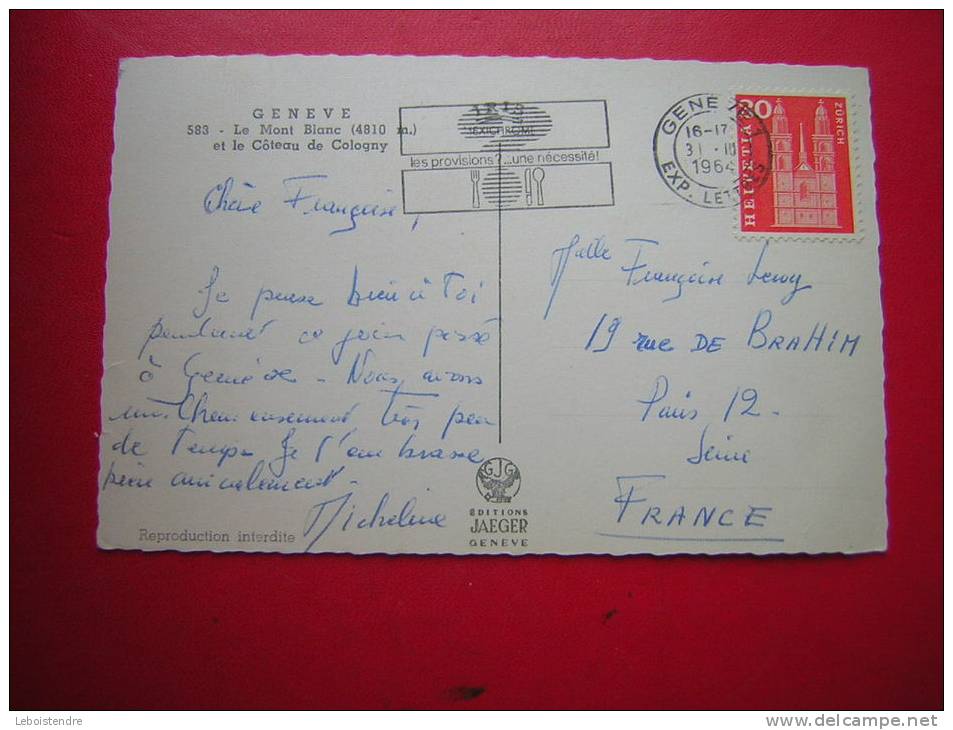 GENEVE
583 - Le Mont Blanc (4810 m.)
et le Côteau de Cologny
les provisions?...une nécessité!
GENEVE
16-17
31 · III
1964
EXP. LETTRES
20
HELVETIA
ZÜRICH
Chère Françoise,
Je pense bien à Toi
pendant ce jour passé
à Genève - Nous avons
malheureusement très peu
de Temps Je t'embrasse
bien amicalement -
Micheline
Melle Françoise Leroy
19 rue DE BRAHIM
Paris 12 -
Seine
FRANCE
GJG
ÉDITIONS
JAEGER
GENÈVE
Reproduction interdite
Leboistendre
www.delcampe.net